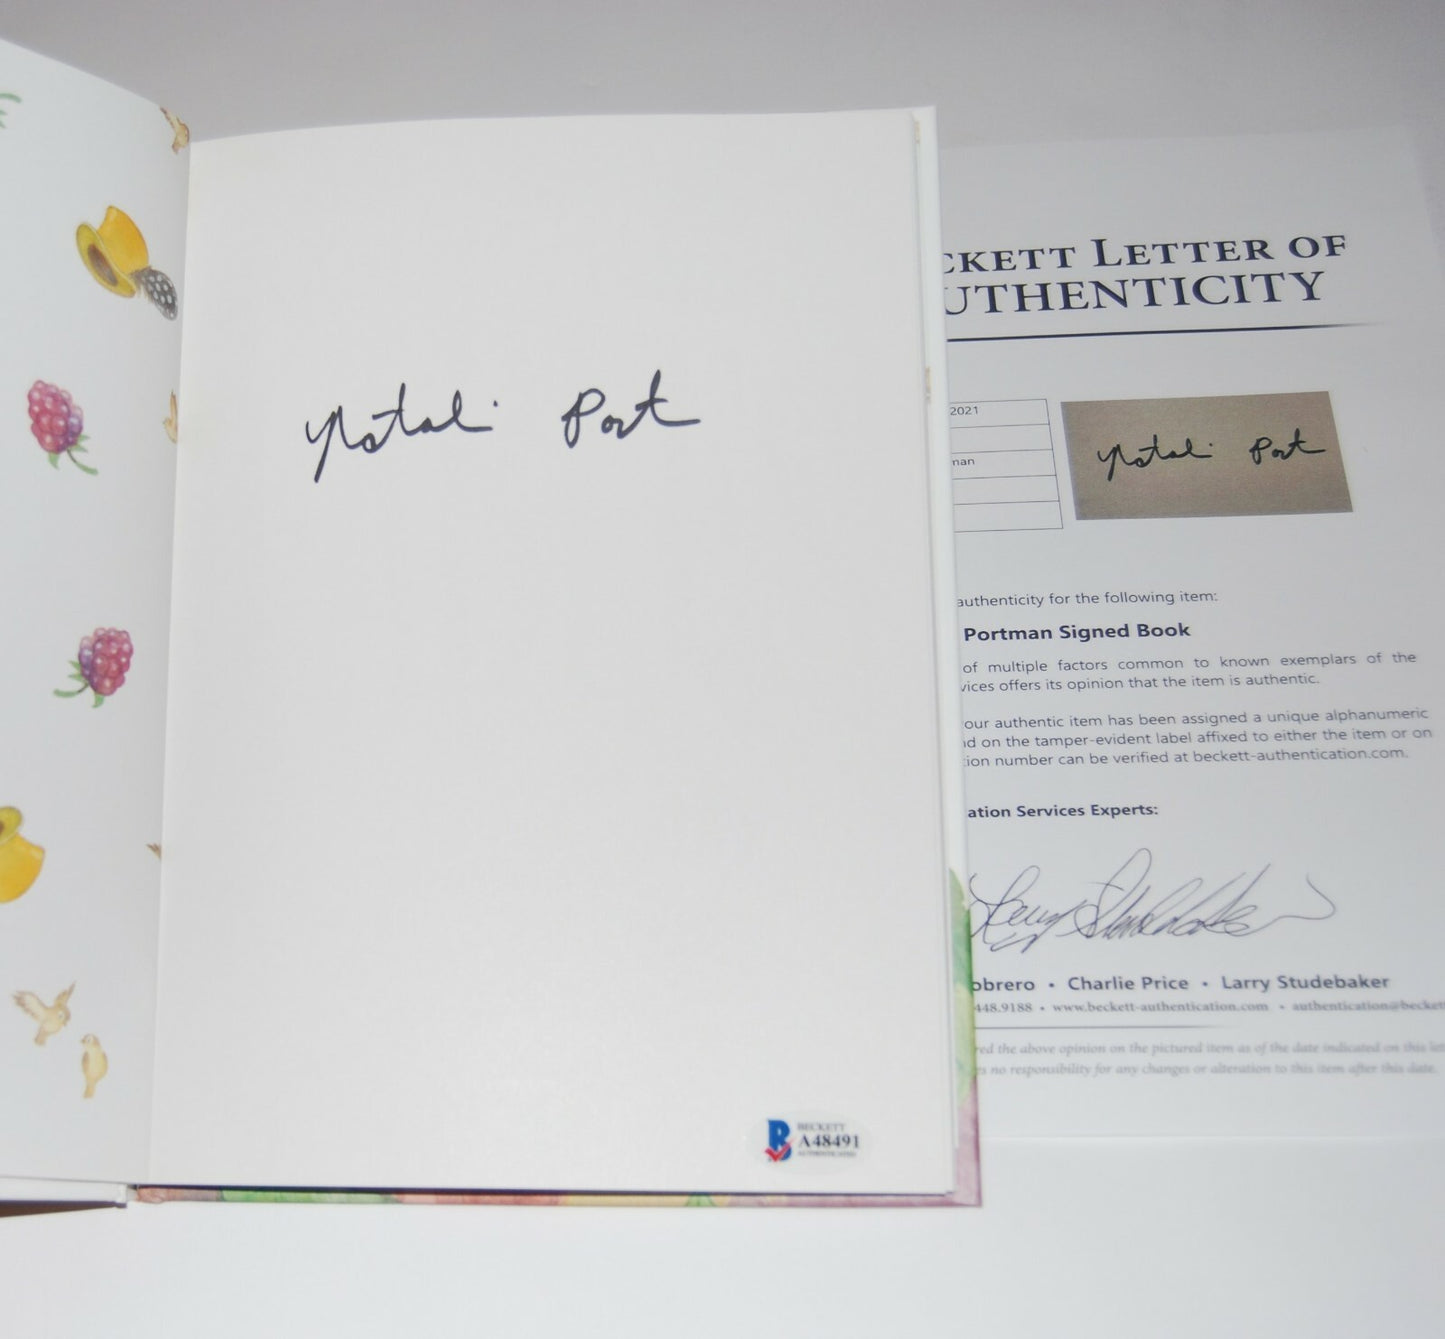 Natali Port
BECKETT
A48491
AUTHENTICATED
CKETT LETTER OF
UTHENTICITY
2021
man
Natali Port
authenticity for the following item:
Portman Signed Book
of multiple factors common to known exemplars of the
vices offers its opinion that the item is authentic.
our authentic item has been assigned a unique alphanumeric
nd on the tamper-evident label affixed to either the item or on
tion number can be verified at beckett-authentication.com.
ation Services Experts:
Larry Studebaker
obrero • Charlie Price • Larry Studebaker
448.9188 • www.beckett-authentication.com • authentication@becket
red the above opinion on the pictured item as of the date indicated on this let
es no responsibility for any changes or alteration to this item after this date.